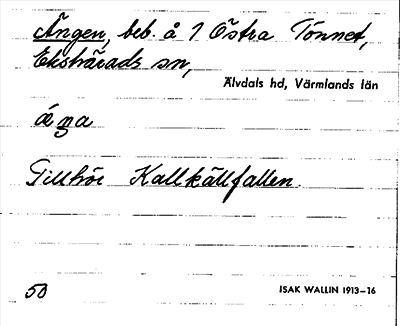 Ängen, beb. å 1 Östra Tönnet,
Ekshärads sn,
Älvdals hd, Värmlands län
Tillhör Kallkällfallen.
50 ISAK WALLIN 1913–16